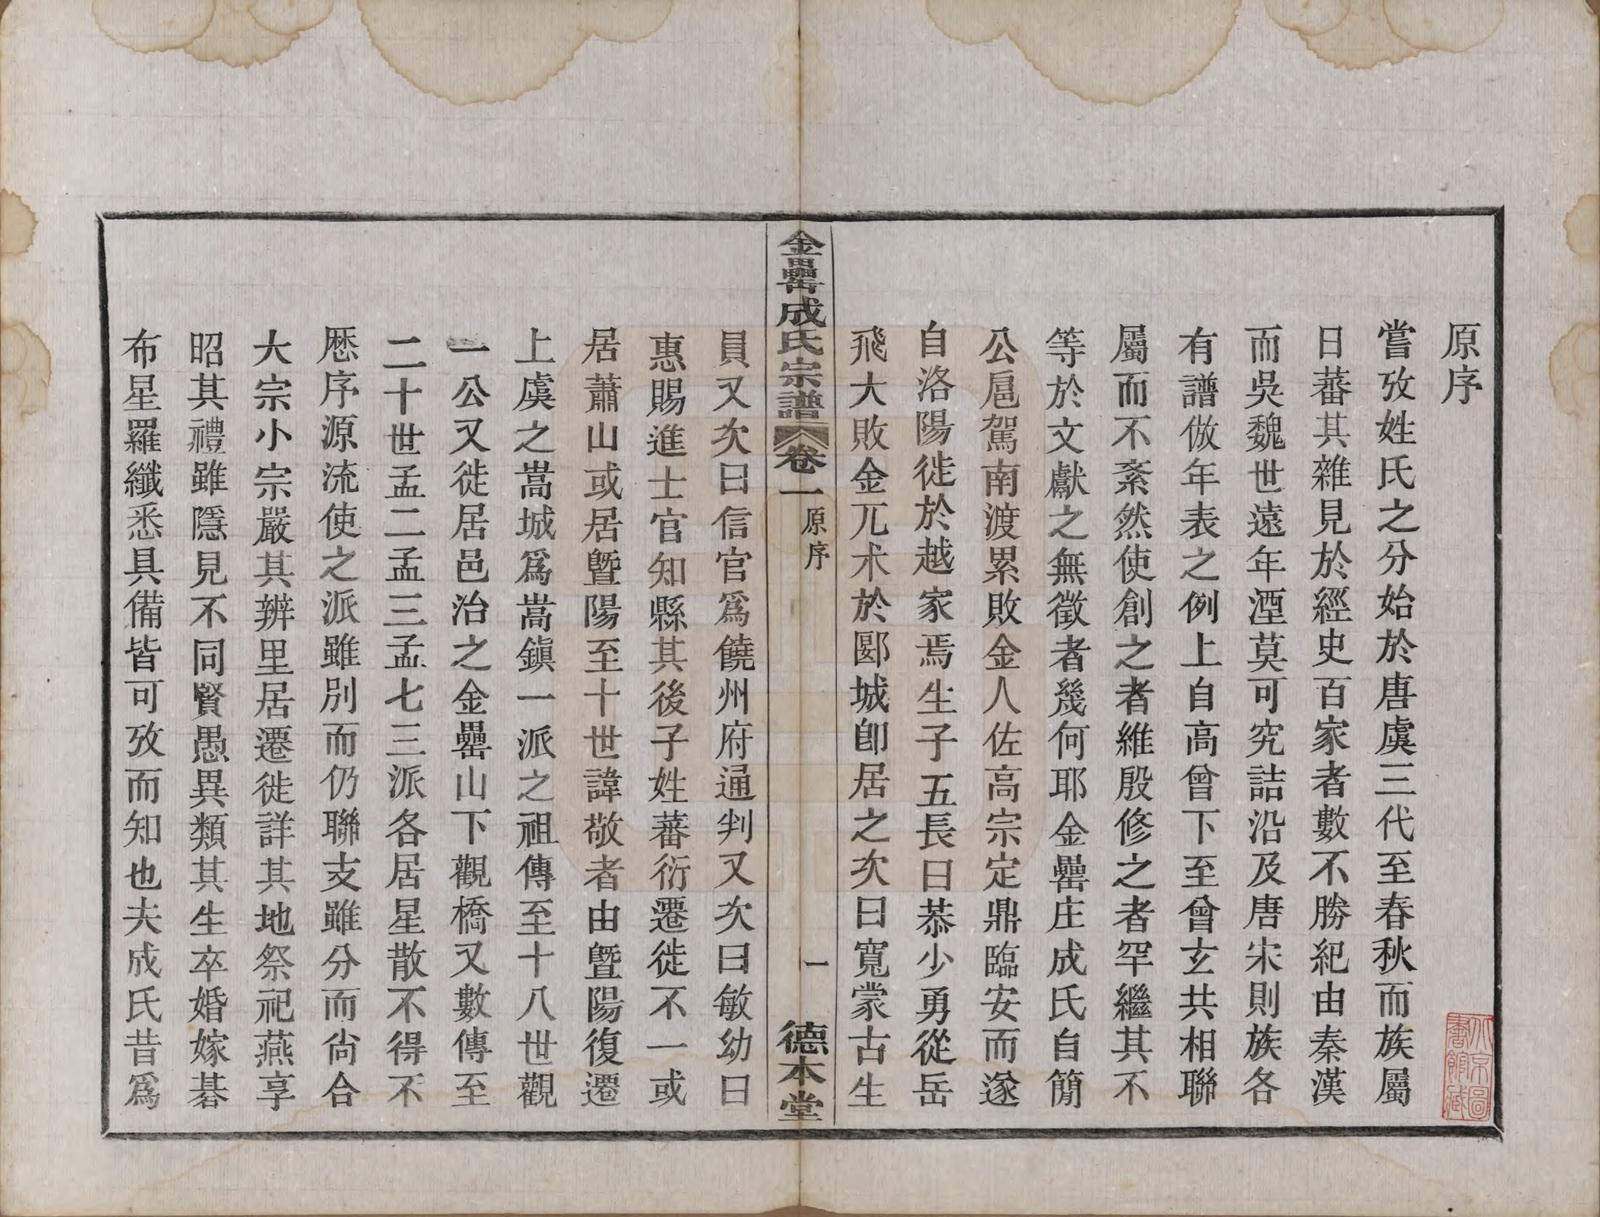 原序
嘗攷姓氏之分始於唐虞三代至春秋而族屬
日蕃其雜見於經史百家者數不勝紀由秦漢
而吳魏世遠年湮莫可究詰沿及唐宋則族各
有譜倣年表之例上自高曾下至曾玄共相聯
屬而不紊然使創之者維殷修之者罕繼其不
等於文獻之無徵者幾何耶金罍庄成氏自簡
公扈駕南渡累敗金人佐高宗定鼎臨安而遂
自洛陽徙於越家焉生子五長曰恭少勇從岳
飛大敗金兀朮於郾城卽居之次曰寬蒙古生
金罍成氏宗譜 卷一 原序 一 德本堂
員又次曰信官爲饒州府通判又次曰敏幼曰
惠賜進士官知縣其後子姓蕃衍遷徙不一或
居蕭山或居曁陽至十世諱敬者由曁陽復遷
上虞之嵩城爲嵩鎭一派之祖傳至十八世觀
一公又徙居邑治之金罍山下觀橋又數傳至
二十世孟二孟三孟七三派各居星散不得不
歷序源流使之派雖別而仍聯支雖分而尙合
大宗小宗嚴其辨里居遷徙詳其地祭祀燕享
昭其禮雖隱見不同賢愚異類其生卒婚嫁碁
布星羅纖悉具備皆可攷而知也夫成氏昔爲
北京圖書館藏